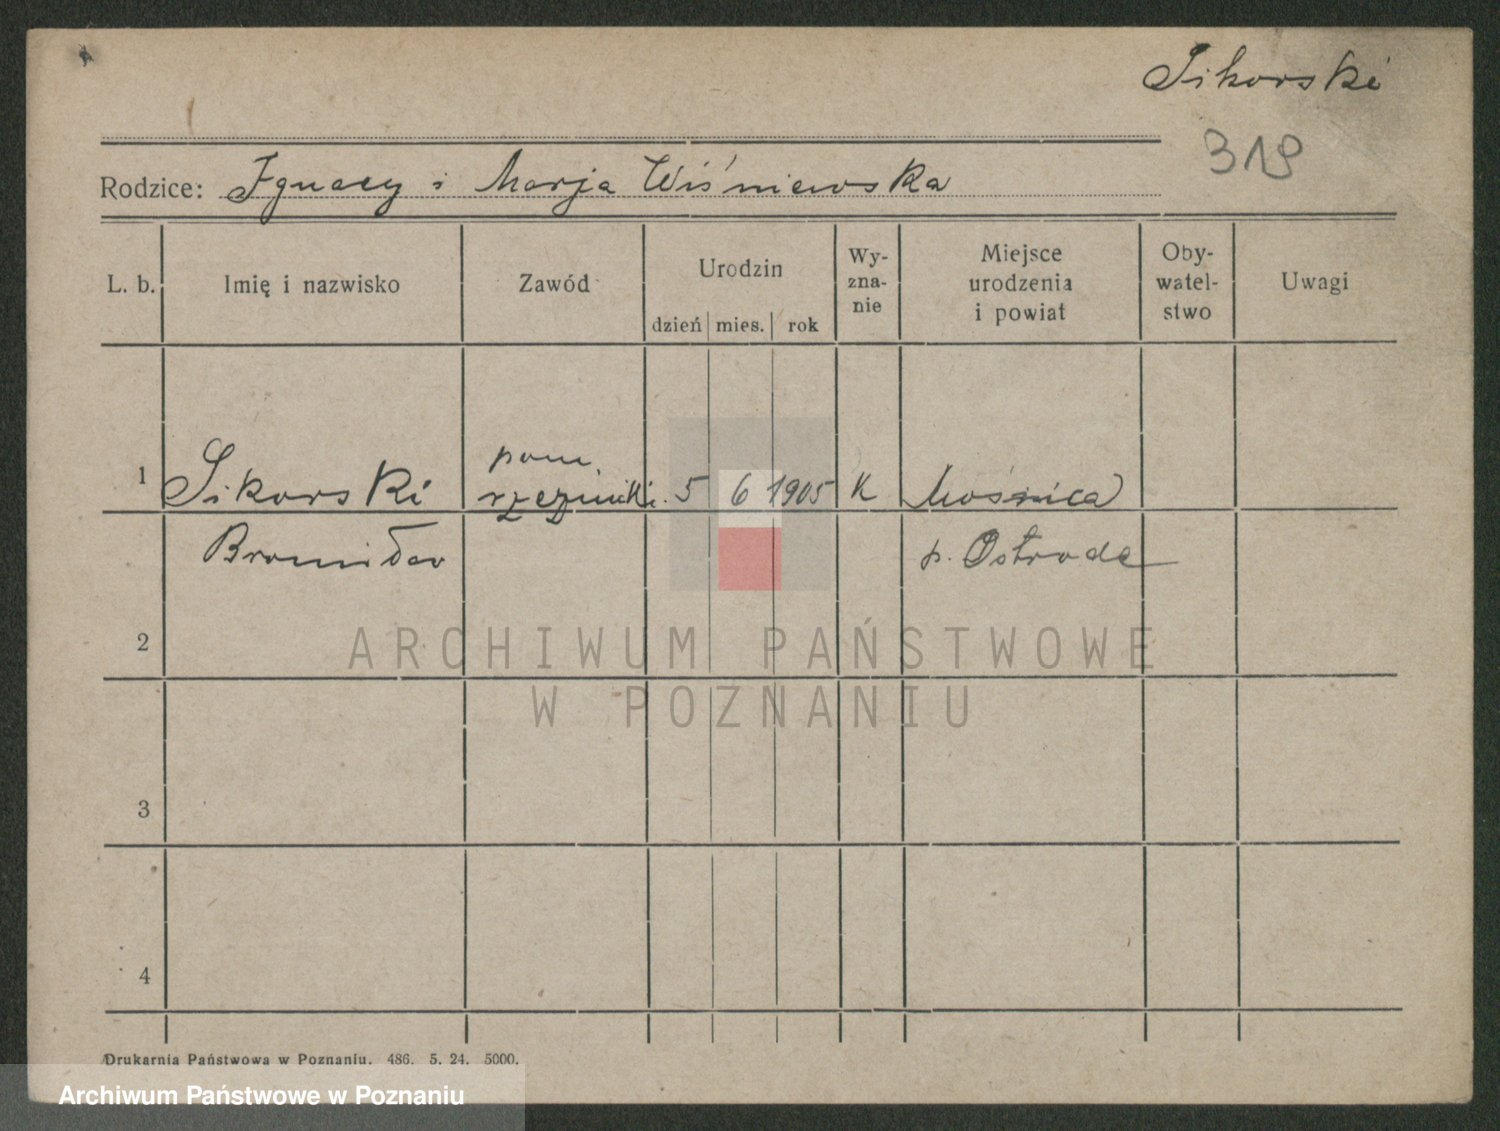 Sikorski
319
Rodzice: Ignacy i Marja Wiśniewska
L. b.
Imię i nazwisko
Zawód
Urodzin
dzień mies. rok
Wy-
zna-
nie
Miejsce
urodzenia
i powiat
Oby-
watel-
stwo
Uwagi
1 Sikorski pom. rzeźnicki. 5 6 1905 K
Bronisław p. Ostroda
2
3
4
ARCHIWUM PAŃSTWOWE
W POZNANIU
Drukarnia Państwowa w Poznaniu. 486. 5. 24. 5000.
Archiwum Państwowe w Poznaniu